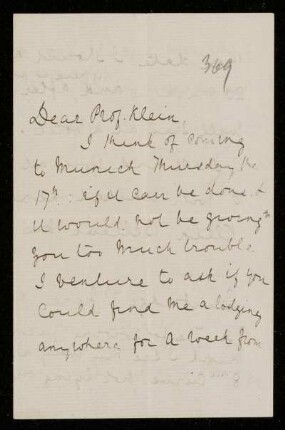 369
Dear Prof. Klein,
I think of coming
to Munich Thursday the
17th: if it can be done &
it would not be giving
you too much trouble.
I venture to ask if you
could find me a lodging
anywhere for a week from